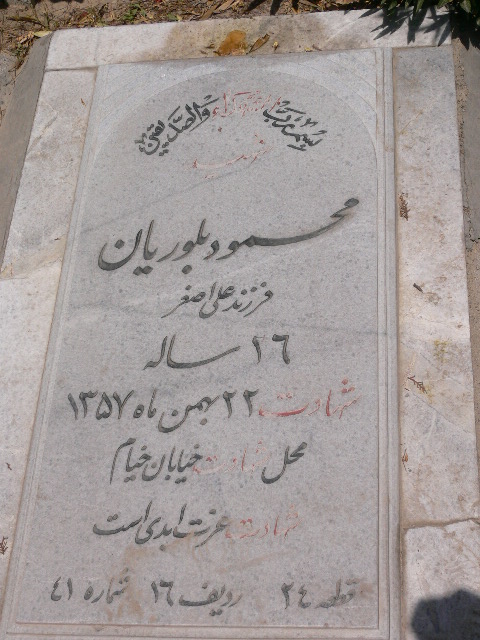 بسم رب الشهداء والصدیقین
شهید
محمود بلوریان
فرزند علی اصغر
۲۶ ساله
شهادت ۲۲ بهمن ماه ۱۳۵۷
محل شهادت خیابان خیام
شهادت عزت ابدی است
قطعه ۲٤ ردیف ۱۶ شماره ٤۱